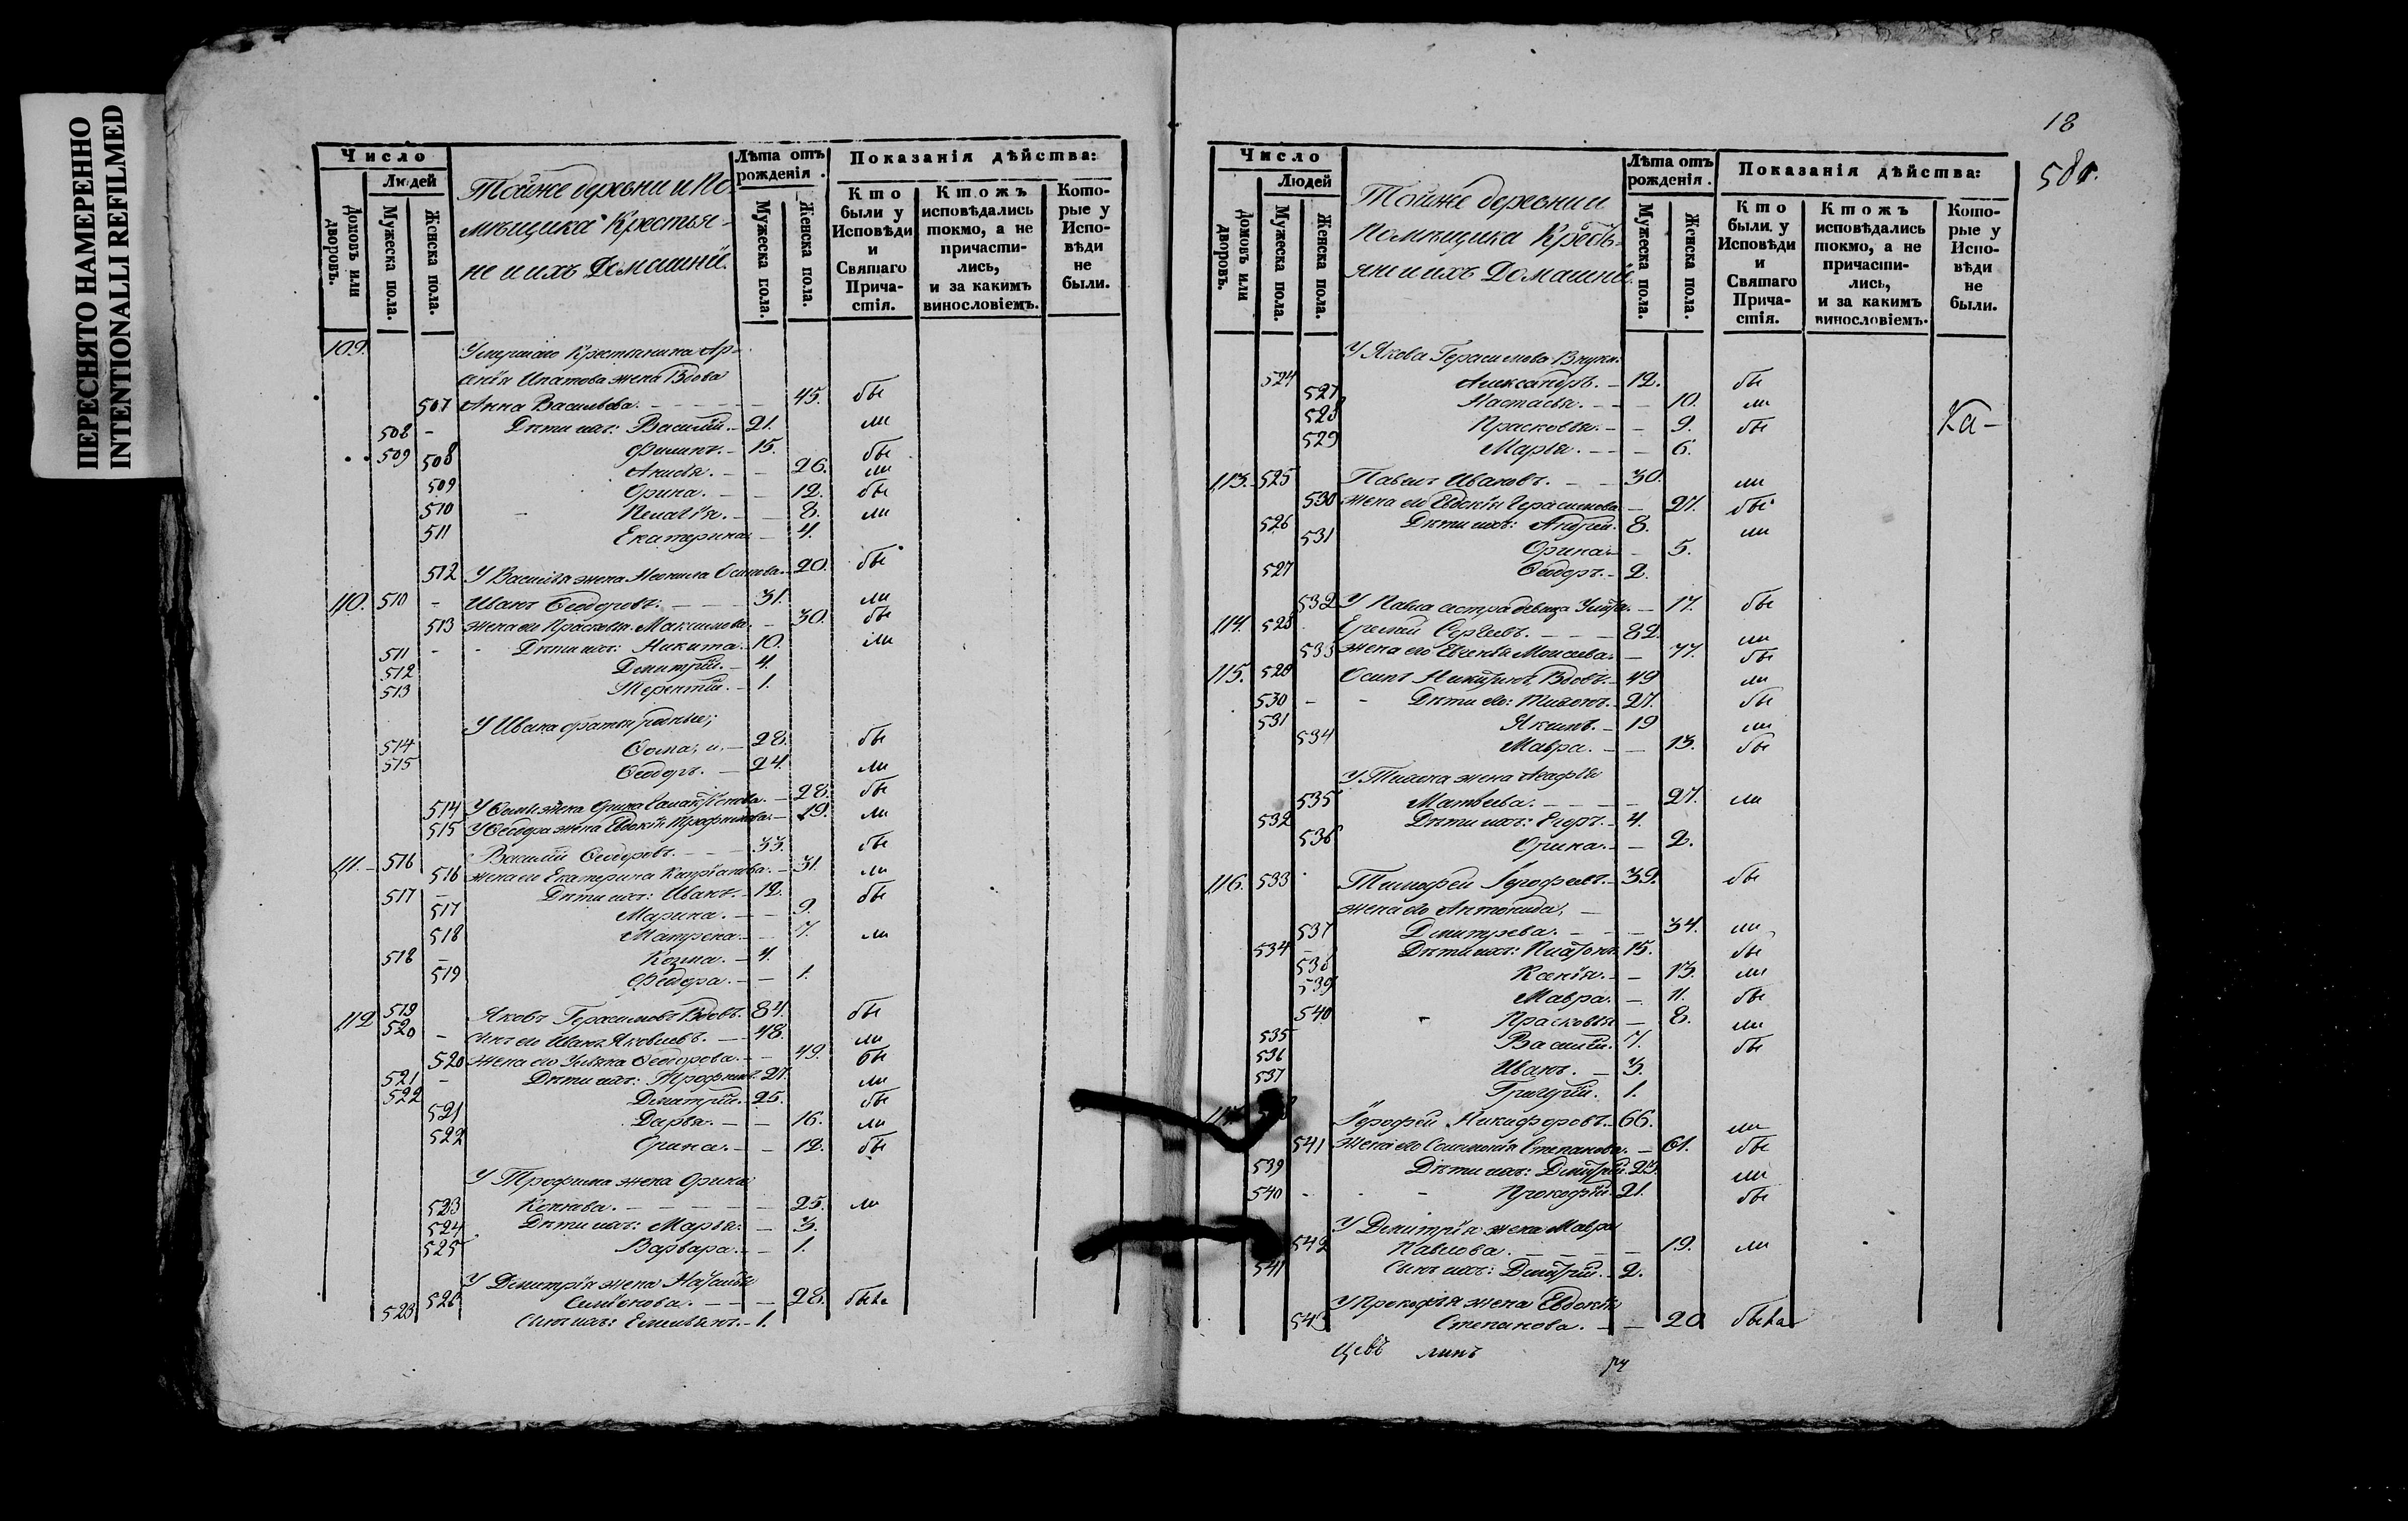 ПЕРЕСНЯТО НАМЕРЕННО
INTENTIONALLI REFILMED
Число
Людей
Домовъ или дворовъ.
Мужеска пола.
Женска пола.
Тойже деревни и По-
мѣщика Крестья-
не и ихъ Домашнiи.
Лѣта отъ рожденiя.
Мужеска пола.
Женска пола.
Показанiя дѣйства:
Кто были у Исповѣди и Святаго Прича-стiя.
Ктожъ исповѣдались токмо, а не причасти-лись, и за какимъ винословiемъ.
Кото-рые у Испо-вѣди не были.
109. Умершаго Крестьянина Ар-
Ипатова жена Вдова
507 Анна Васильева. 45. бы
508 Дѣти ихъ: Василiй. 21. ли
509 Филипъ. 15. бы
508 26. ли
509 Орина. 12. бы
510 8. ли
511 Екатерина 4.
512 У Василья жена Осипова. 20. бы
110. 510 Иванъ Ѳеодоровъ. 31. ли
513 жена его Прасковья Максимова. 30. бы
511 Дѣти ихъ: Никита. 10. ли
512 Дмитрiй. 4.
513 Терентiй. 1.
У Ивана братья родные;
514 Ѳома, и, 28. бы
515 Ѳеодоръ. 24. ли
514 У Ѳомы жена Орина 28. бы
515 У Ѳеодора жена Евдокiя Трофимова. 19. ли
111. 516 Василiй Ѳеодоровъ. 33. бы
516 жена его Екатерина Кипрiанова. 31. ли
517 Дѣти ихъ: Иванъ. 12. бы
517 Марина. 9.
518 Матрена. 7. ли
518 Козма. 4.
519 Ѳедора. 1.
112 519 Яковъ Герасимовъ Вдовъ. 84. бы
520 сынъ его Иванъ Яковлевъ. 48. ли
520 жена его Ульяна Ѳеодорова. 49. бы
521 Дѣти ихъ: Трофимъ 27. ли
522 Дмитрiй. 25. бы
521 Дарья. 16. ли
522 Орина. 12. бы
У Трофима жена Орина
523 25. ли
524 Дѣти ихъ: Марья. 3.
525 Варвара. 1.
У Дмитрiя жена Наталья
526 Симiонова. 28. была
523 сынъ ихъ: Емельянъ. 1.
18
Число
Людей
Домовъ или дворовъ.
Мужеска пола.
Женска пола.
Тойже деревни и
помѣщика Крестъ-
яне и ихъ Домашнiи.
Лѣта отъ рожденiя.
Мужеска пола.
Женска пола.
Показанiя дѣйства:
Кто были у Исповѣди и Святаго Прича-стiя.
Ктожъ исповѣдались токмо, а не причасти-лись, и за какимъ винословiемъ.
Кото-рые у Испо-вѣди не были.
У Якова Герасимова Внуки.
524 Александръ. 12. бы
527 Настасья. 10. ли
528 Прасковья. 9. бы
529 Марья. 6.
Ка-
113. 525 Павелъ Ивановъ. 30. ли
530 жена его Евдокiя Герасимова 27. бы
526 Дѣти ихъ: Андрей. 8. ли
531 Орина. 5.
527 Ѳеодоръ. 2.
532 У Павла сестра девица 17. бы
114. 528 Еремей Сергѣевъ. 82. ли
533 жена его Евгенья Моисеева. 77. бы
115. 529 Осипъ Никитинъ Вдовъ. 49 ли
530 Дѣти его: 27. бы
531 Якимъ. 19 ли
534 Мавра. 13. бы
жена Агафья
535 Матвѣева. 27. ли
532 Дѣти ихъ: Егоръ. 4.
536 Орина. 2.
116. 533 Тимофей Ерофеевъ. 39. бы
жена его Антонида,
537 Дмитрева. 34. ли
534 Дѣти ихъ: Платонъ 15. бы
538 Ксенiя. 13. ли
539 Мавра. 11. бы
540 Прасковья 8. ли
535 Василiй. 7. бы
536 Иванъ. 3.
537 Григорiй. 1.
Ерофей Никифоровъ. 66. ли
541 жена его Соломонiя Степанова. 61. бы
539 Дѣти ихъ: Дмитрiй. 23. ли
540 Прокофiй. 21. бы
У Дмитрiя жена Мавра
542 Павлова. 19. ли
541 сынъ ихъ: Дмитрiй. 2.
У Прокофiя жена Евдокiя
543 Степанова. 20 была